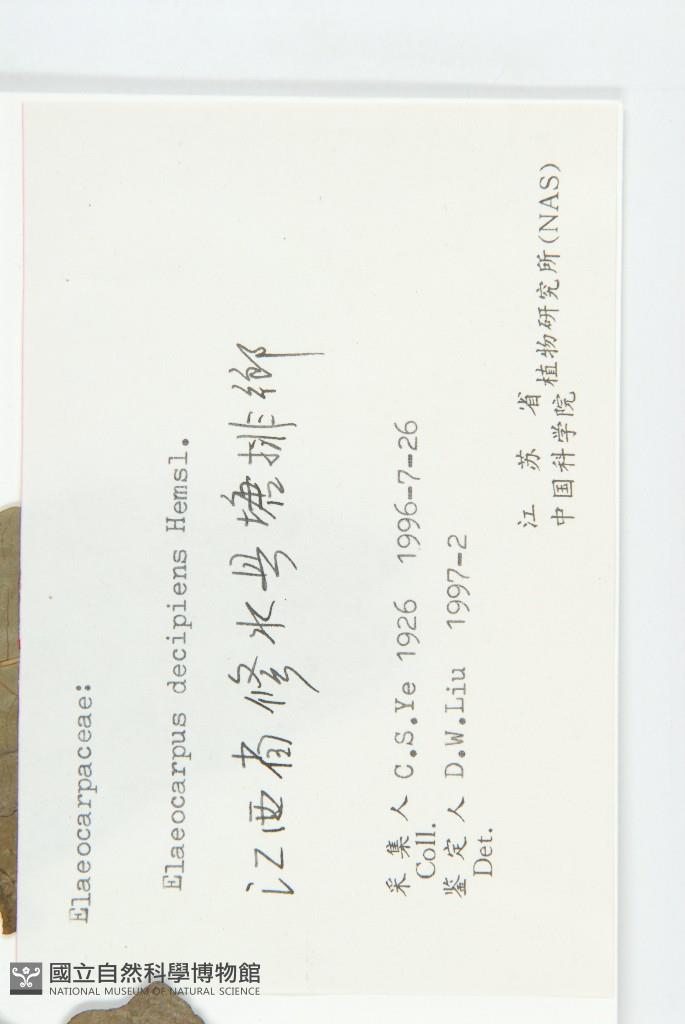 Elaeocarpaceae:
Elaeocarpus decipiens Hemsl.
江西省修水县塘排鄉
采集人 C.S.Ye 1926 1996-7-26
Coll.
鉴定人 D.W.Liu 1997-2
Det.
江苏省
中国科学院植物研究所(NAS)
國立自然科學博物館
NATIONAL MUSEUM OF NATURAL SCIENCE